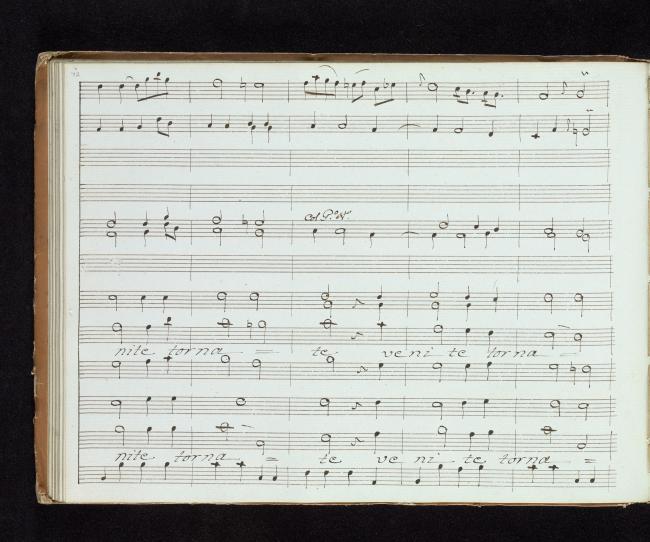 42
Col P.º V.º
nite torna = te veni te torna =
nite torna = te ve ni te torna =